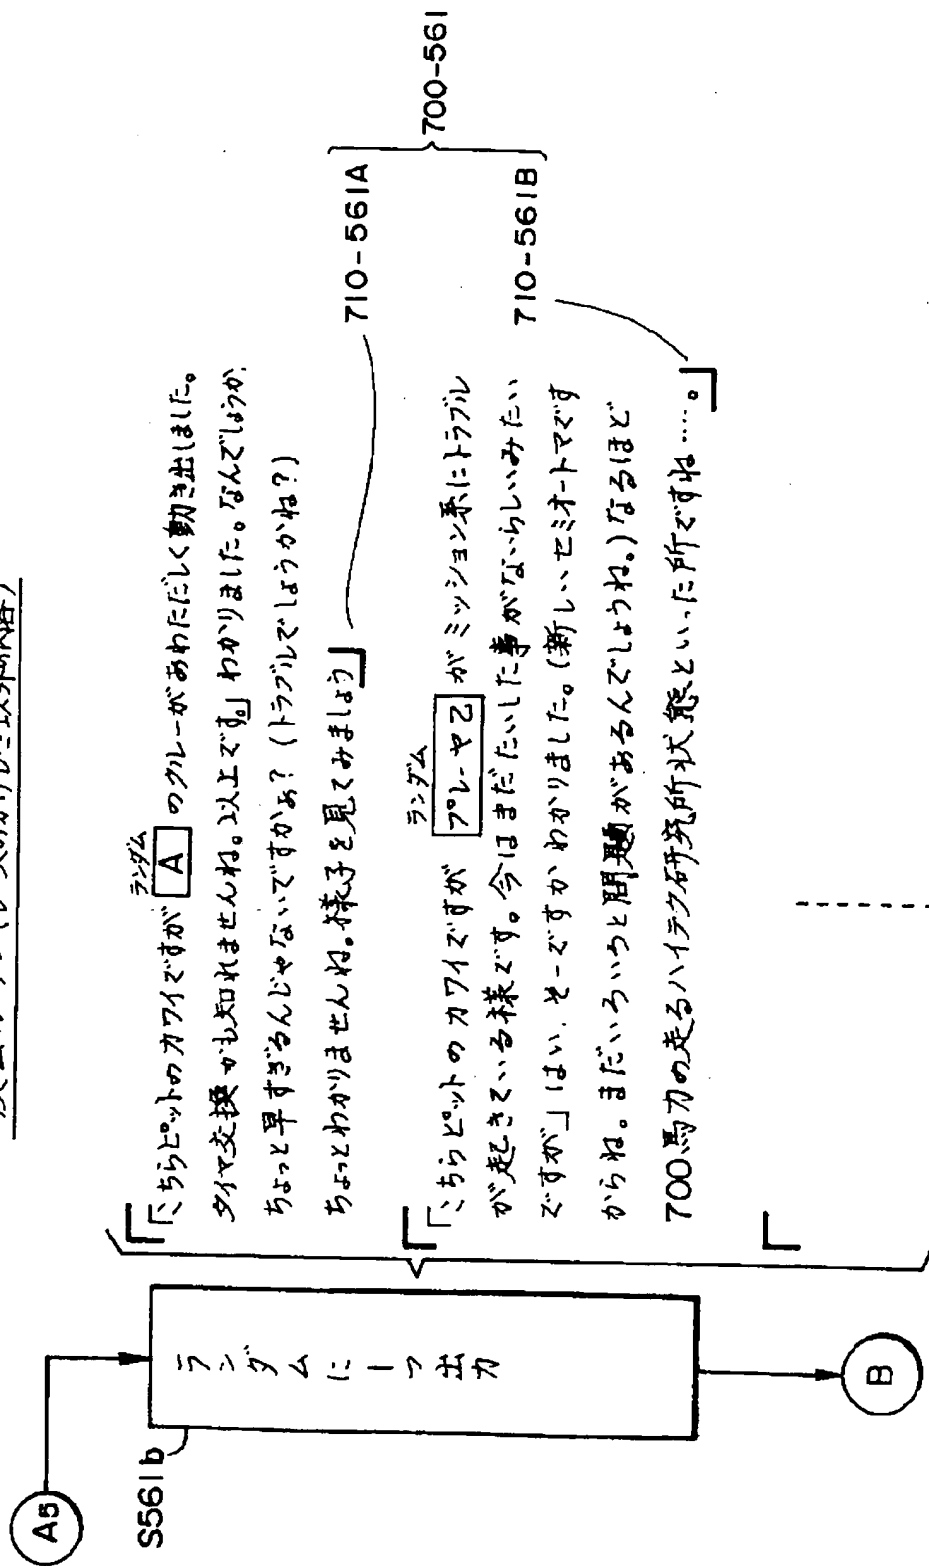 A5
S561b
ランダムに一つ出力
B
ランダム
「こちらピットのカワイですが A のクルーがあわただしく動き出しました。
タイヤ交換かも知れませんね。以上です。」わかりました。なんでしょうか、
ちょっと早すぎるんじゃないですかぁ?(トラブルでしょうかね?)
ちょっとわかりませんね。様子を見てみましょう
710-561A
ランダム
「こちらピットのカワイですが プレーヤ2 がミッション系にトラブル
が起きている様です。今はまだたいした事がないらしいみたい
ですが」はい、そーですかわかりました。(新しいセミオートマです
からね。まだいろいろと問題があるんでしょうね。)なるほど
700馬力の走るハイテク研究所状態といった所ですね……。
710-561B
700-561